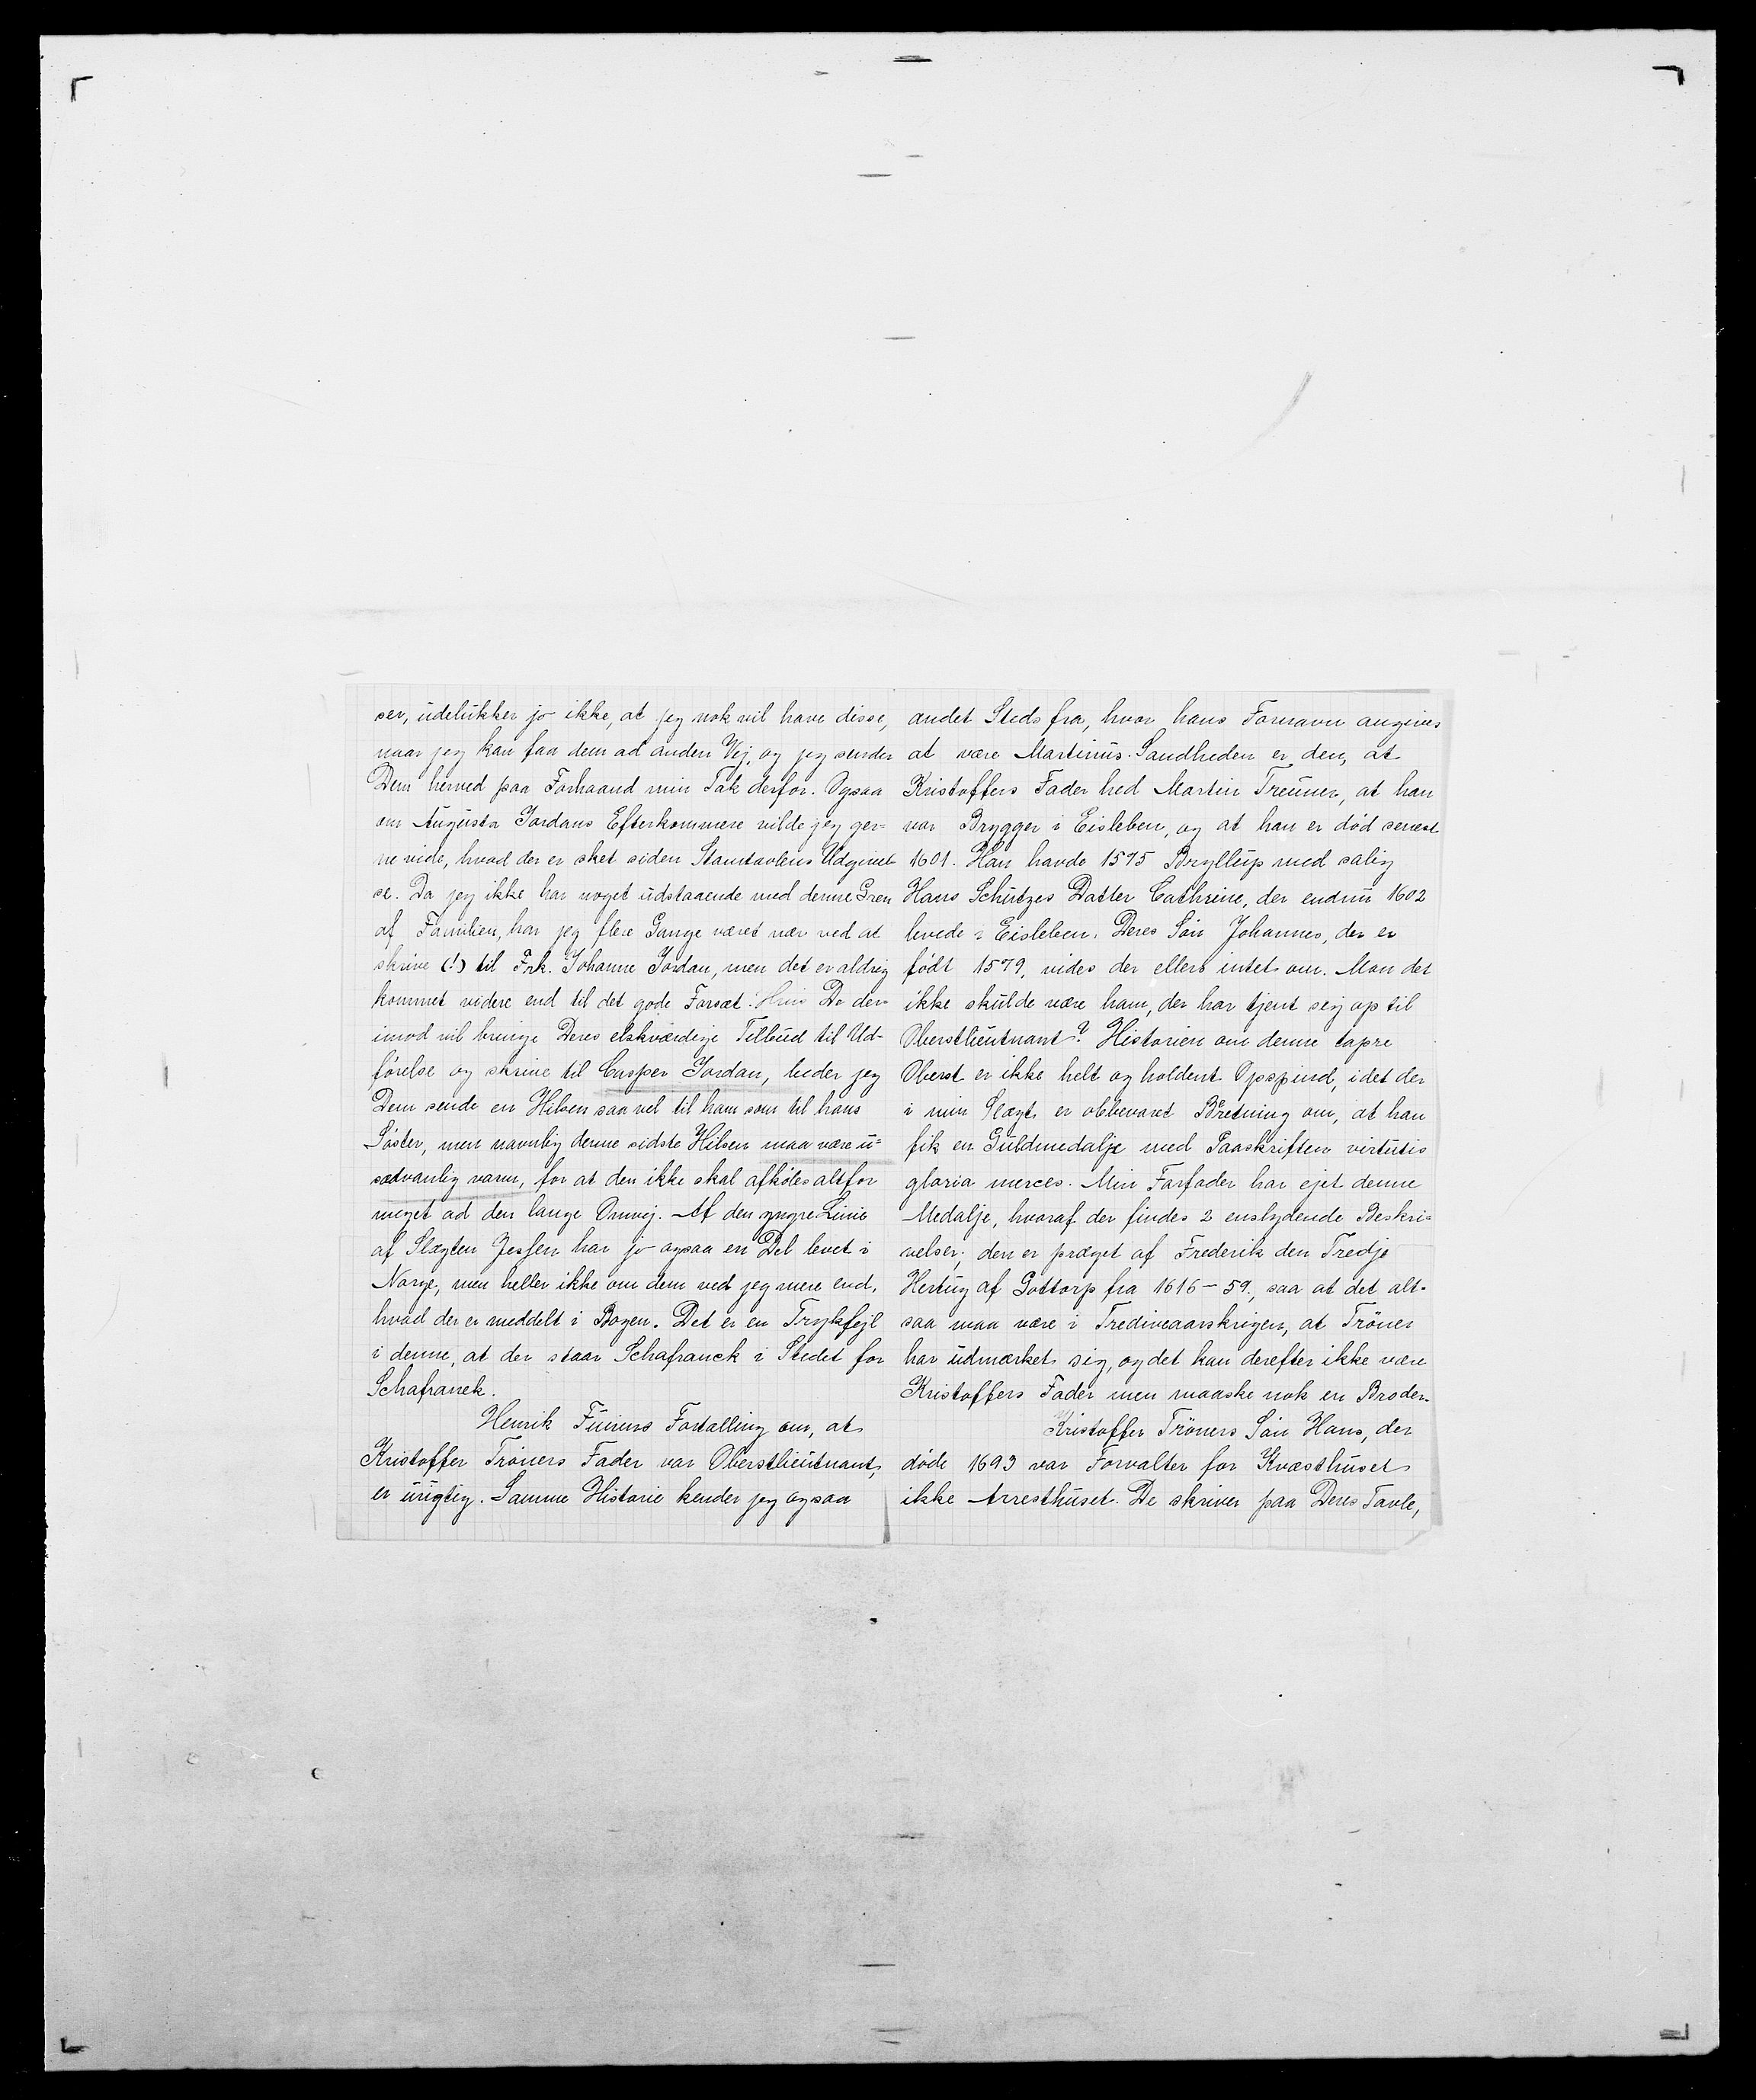 ser, udelukker jo ikke, at jeg nok vil have disse,
naar jeg kan faa dem ad anden Vej, og jeg sender
Dem herved paa Forhaand min Tak derfor. Ogsaa
om Augusta Jordans Efterkommere vilde jeg ger-
ne vide, hvad der er sket siden Stamtavlens Udgivel-
se. Da jeg ikke har noget udstaaende med denne Gren
af Familien, har jeg flere Gange været nær ved at
skrive (!) til Frk. Johanne Jordan, men det er aldrig
kommet videre end til det gode Forsæt. Hvis De der-
imod vil bringe Deres elskværdige Tilbud til Ud-
førelse og skrive til Casper Jordan, beder jeg
Dem sende en Hilsen saa vel til ham som til hans
Søster, men navnlig denne sidste Hilsen maa være u-
sædvanlig varm, for at den ikke skal afkøles altfor
meget ad den lange Omvej. Af den yngre Linie
af Slægten Jessen har jo ogsaa en Del levet i
Norge, men heller ikke om dem ved jeg mere end,
hvad der er meddelt i Bogen. Det er en Trykfejl
i denne, at der staar Schafranck i Stedet for
Schafranek.
Henrik Fuirens Fortælling om, at
Kristoffer Tröners Fader var Oberstlieutnant,
er urigtig. Samme Historie kender jeg ogsaa
andet Steds fra, hvor hans Fornavn angives
at være Martinus. Sandheden er den, at
Kristoffers Fader hed Martin Treuner, at han
var Brygger i Eisleben, og at han er død senest
1601. Han havde 1575 Bryllup med salig
Hans Schützes Datter Cathrine, der endnu 1602
levede i Eisleben. Deres Søn Johannes, der er
født 1579, vides der ellers intet om. Mon det
ikke skulde være ham, der har tjent sig op til
Oberstlieutnant? Historien om denne tapre
Oberst er ikke helt og holdent Opspind, idet der
i min Slægt er obbevaret Beretning om, at han
fik en Guldmedalje med Paaskriften virtutis
gloria merces. Min Farfader har ejet denne
Medalje, hvoraf der findes 2 enslydende Beskri-
velser; den er præget af Frederik den Tredje
Hertug af Gottorp fra 1616–59., saa at det alt-
saa maa være i Trediveaarskrigen, at Tröner
har udmærket sig, og det kan derefter ikke være
Kristoffers Fader men maaske nok en Broder.
Kristoffer Tröners Søn Hans, der
døde 1693 var Forvalter for Kvæsthuset
ikke Arresthuset. De skriver paa Deres Tavle,